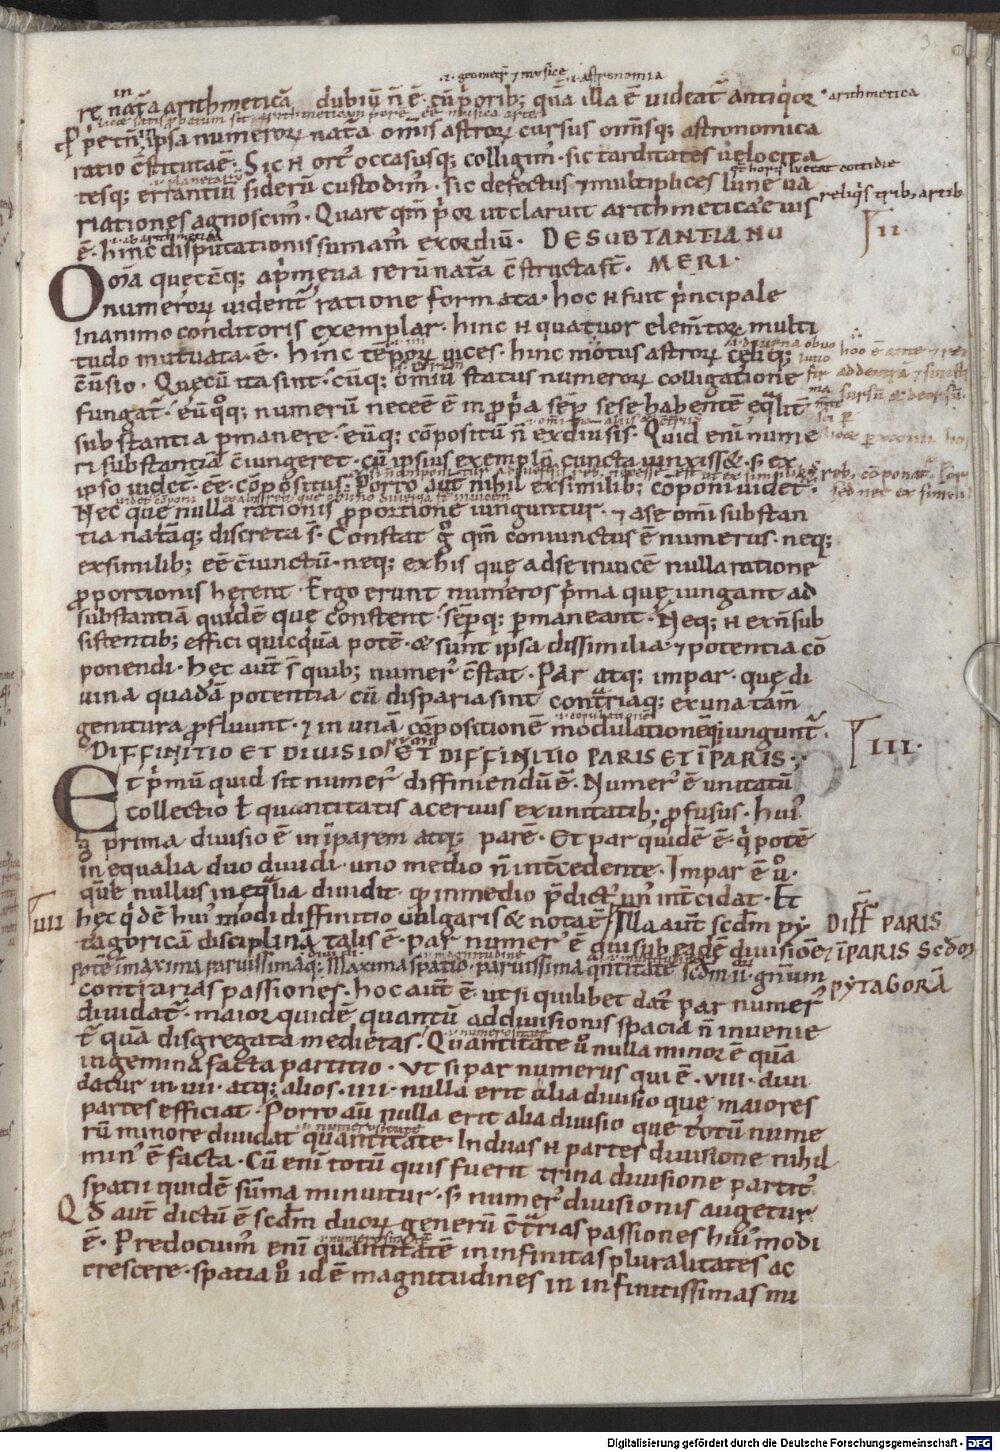 .i. geometr̄ ⁊ musicę .i. astronomia
re natā arithmeticā dubiū n̄ ē. cū p̄orib; quā illa ē uideat̄ antiq̄or arithmetica
ipsa numeroꝝ nata om̄is astroꝝ cursus om̄isq; astronomica
ratio c̄stituta ē. Sic n̄ ort' occasusq; colligim'. sic tarditates uelocita
tesq; errantiū siderū custodim'. sic defectus ⁊ multiplices lune ua
riationes agnoscim'. Quare qm̄ p̄or ut claruit arithmeticæ uis
ē. hinc disputationis sumam' exordiū. DE SUBTANTIA NU
II.
Om̄a quęcūq; a p̄męua rerū natā c̄structa st̄. MERI.
numeroꝝ uident̄ ratione formata. hoc n̄ fuit p̄ncipale
In animo conditoris exemplar. hinc n̄ quatuor elem̄toꝝ multi
tudo mutuata. ē. hinc tēpoꝝ uices. hinc motus astroꝝ cęliq;
c̄uersio. Quęcū ita sint. cūq; omiū status numeroꝝ colligatione
fungat̄. eūq̊q; numerū necee ē in p̄pa sēp sese habentē eq̄lit̄
substantia p̄manere. eūq; cōpositū n̄ ex diuisis. Quid enī nume
ri substantiā c̄iungeret. cū ipsius exemplū cuncta iunxiss&. s; ex
ipso uidet. ee. cōpositus. Porro aut̄ nihil ex similib; cōponi uidet.
Nec que nulla rationis p̄portione iunguntur. ⁊ a se om̄i substan
tia natāq; discreta s̄. Constat ḡ qm̄ coniunctus ē numerus. neq;
ex similib; eē c̄iunctū. neq; ex his quę ad se inuicē nulla ratione
p̄portionis herent. Ergo erunt numeros p̄ma quę iungant ad
substantiā quidē que constent. sēpq; p̄maneant. Neq; n̄ ex n̄ sub
sistentib; effici quicquā potē. & sunt ipsa dissimilia. ⁊ potentia cō
ponendi. hęc aut̄ s̄ quib; numer' c̄stat. Par atq; impar. quę di
uina quadā potentia cū disparia sint contrariaq; ex una tam̄
genitura p̄fluunt. ⁊ in unā cōpositionē modulationēq; iungunt̄.
III.
DIFFINITIO ET DIUISIO ET DIFFINITIO PARIS ET ĪPARIS.
Et p̄mū quid sit numer' diffiniendū ē. Numer' ē unitatū
collectio ł quantitatis aceruus ex unitatib; p̄fusus. hui'
g̊ prima diuisio ē in īparem atq; parē. Et par quidē ē. q̄ potē
in equalia duo diuidi. uno medio n̄ int̄cedente. Impar ē u̇.
quē nullus in eq̄lia diuidit. qd in medio p̄dict' un' int̄cidat. Et
IIII hęc q̄dē hui' modi diffinitio uulgaris & nota ē. Illa aut̄ scdm̄ py
DIFF̄ PARIS
tagoricā disciplinā talis ē. par numer' ē qui sub eadē diuisiōe
⁊ īPARIS SCD̄M
potē ī maxima paruissimaq;. Maxima spatio. paruissima q̄ntitate scdm̄ ii. gn̄um
PYTAGORĀ
contrarias passiones. hoc aut̄ ē. ut si quilibet dat' par numer'
diuidat̄. maior quidē quantū ad diuisionis spacia n̄ inuenie
t̄ quā disgregata medietas. Quantitate u̇ nulla minor ē quā
in gemina facta partitio. Ut si par numerus qui ē. VIII. diui
datur in. IIII. atq; alios. IIII. nulla erit alia diuisio quę maiores
partes efficiat. Porro aū nulla erit alia diuisio quę totū nume
rū minore diuidat quantitate. In duas n̄ partes diuisione nihil
min' ē facta. Cū enī totū quis fuerit trina diuisione partit'.
spatii quidē sūma minuitur. s; numer' diuisionis augetur.
Qd̄ aut̄ dictū ē scdm̄ duoꝝ generū c̄trarias passiones hui' modi
ē. Predocuim' enī quantitatē in infinitas pluralitates ac
crescere. spatia u̇ id ē magnitudines in infinitissimas mi
Digitalisierung gefördert durch die Deutsche Forschungsgemeinschaft - DFG